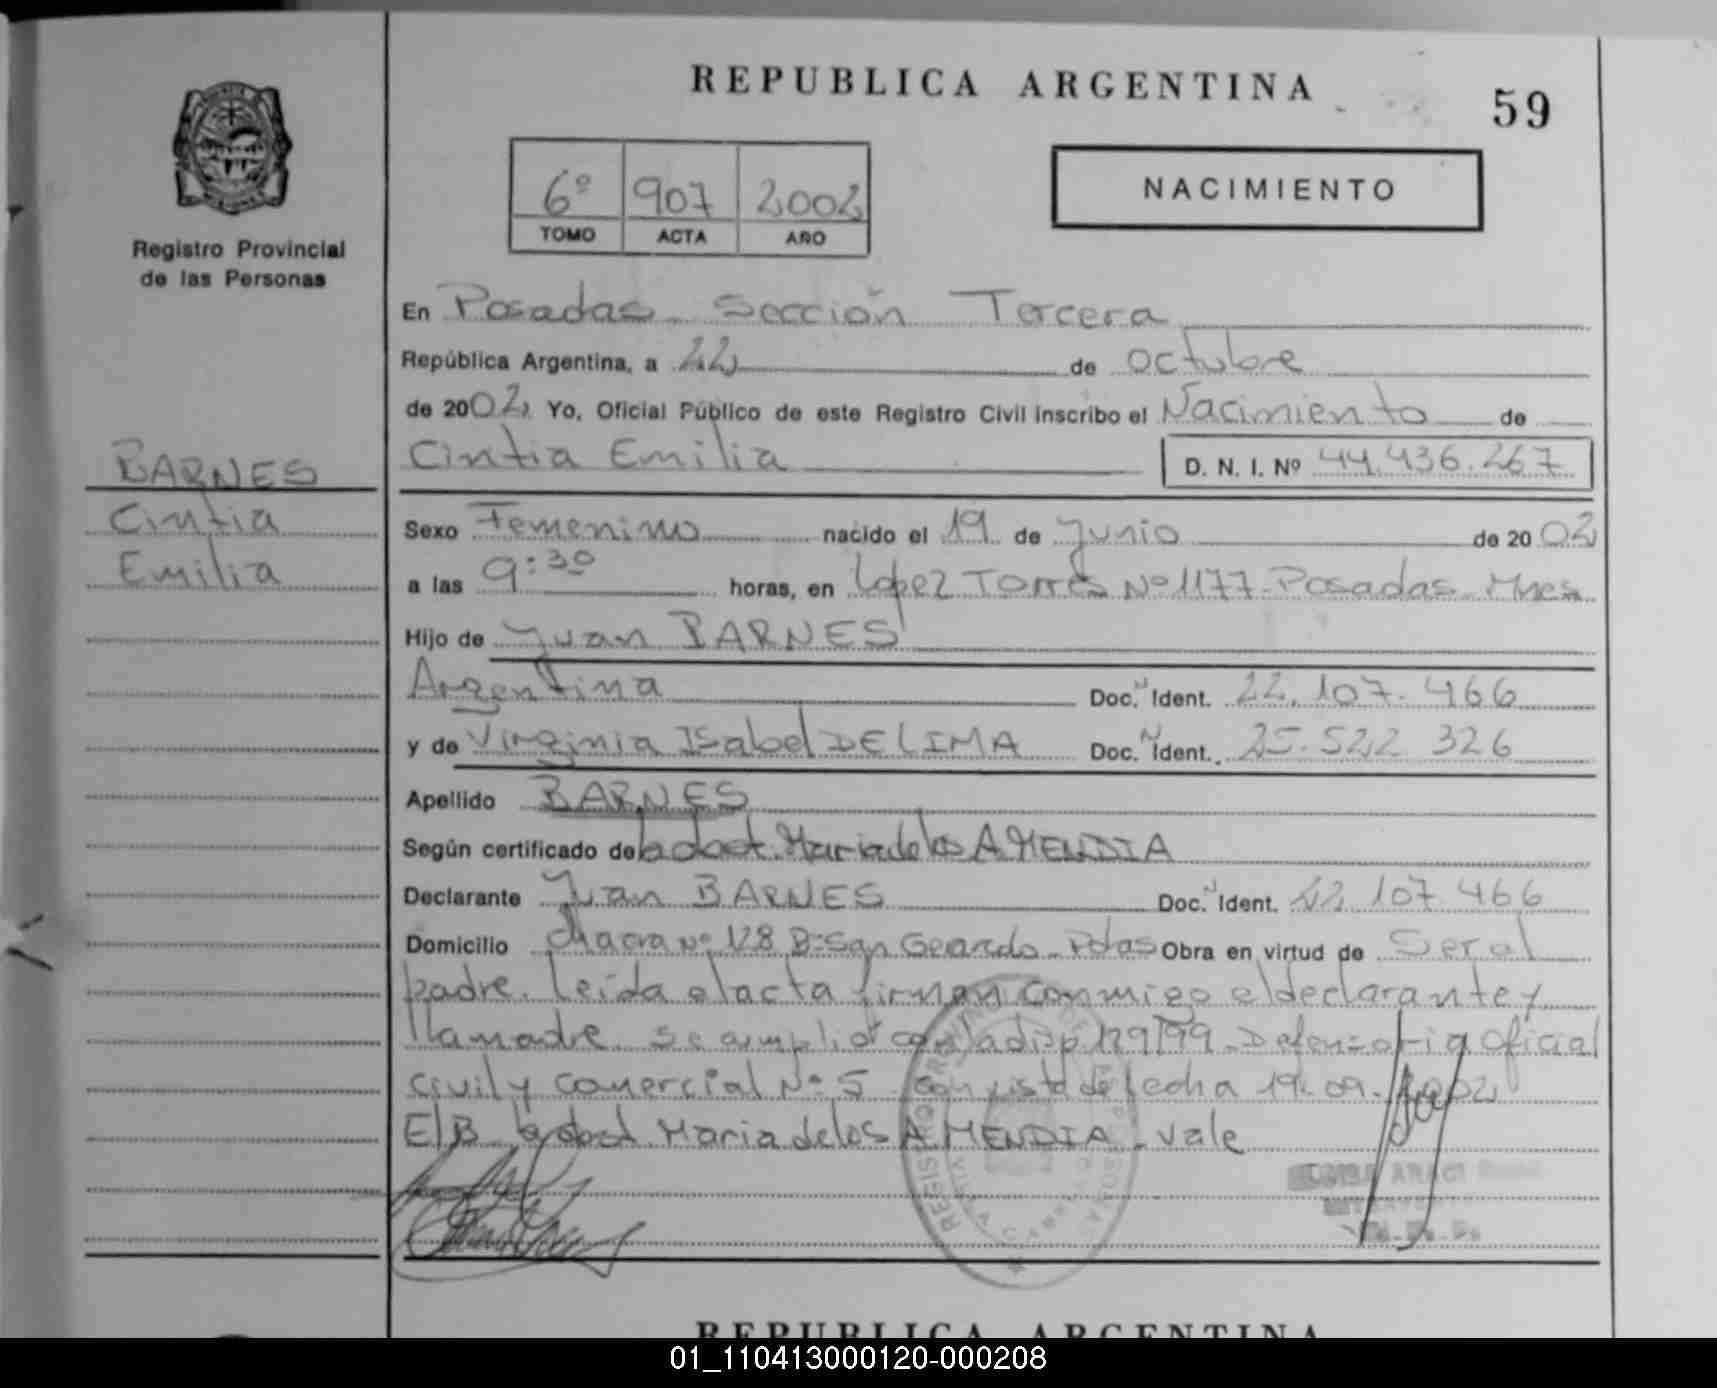 REPUBLICA ARGENTINA
59
6º 907 2002
TOMO ACTA AÑO
NACIMIENTO
Registro Provincial
de las Personas
En Posadas - Sección Tercera
República Argentina, a 22 de octubre
de 2002 Yo, Oficial Público de este Registro Civil inscribo el Nacimiento de
Cintia Emilia D. N. I. Nº 44.436.267
BARNES
Cintia
Emilia
Sexo Femenino nacido el 19 de Junio de 2002
a las 9:30 horas, en Lopez Torres Nº 1177 - Posadas - Mnes
Hijo de Juan BARNES
Argentina Doc. Ident. 22.107.466
y de Virginia Isabel DE LIMA Doc. Ident. 25.522.326
Apellido BARNES
Según certificado de la obst. Maria de los A. MENDIA
Declarante Juan BARNES Doc. Ident. 22.107.466
Domicilio Chacra Nº 128 Bº San Gerardo - Pdas Obra en virtud de Ser el
padre. Leída el acta firman conmigo el declarante y
la madre. Se cumplió con la disp 129/99 - Defensoria Oficial
civil y comercial Nº 5 con vista de fecha 19.09.2002
E/B la obst. Maria de los A. MENDIA - Vale
REPUBLICA ARGENTINA
01_110413000120-000208